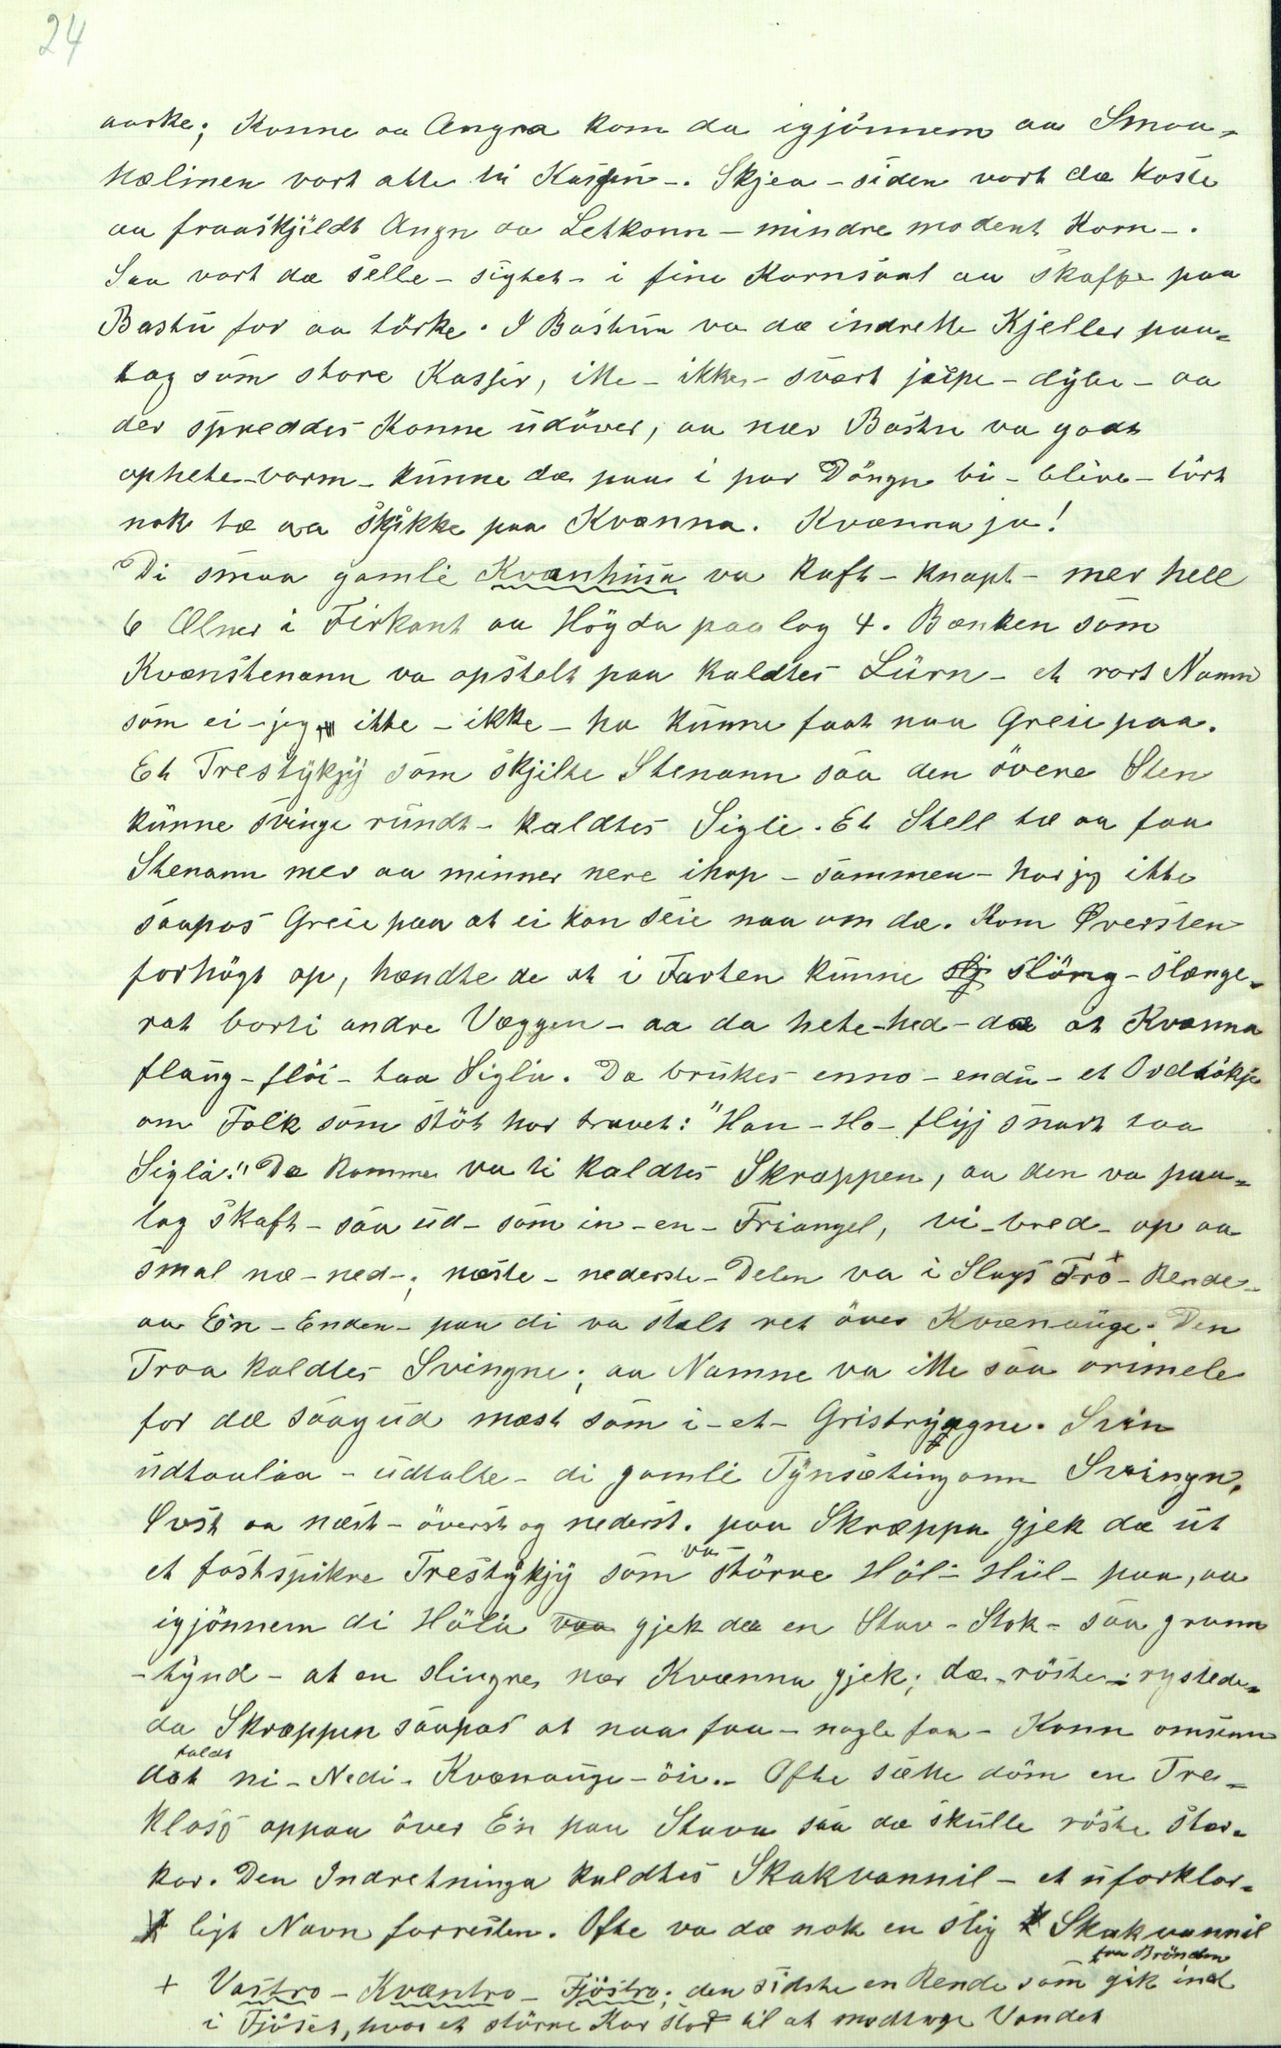 24
aorke; Konne aa Angna kom da igjönnem aa Smaa-
hælinen vort atte ti Kassen-. Skjea - siden vort dæ kaste
aa fraaskjildt Angn aa Letkonn - mindre modent Korn -.
Saa vort dæ selle - sigtet - i fine Kornsaal aa skaffe paa
Bastu for aa törke. I Bastun va dæ indrette Kjeller paa-
lag som store Kasser, itte - ikke - svært jaipe - dybe - aa
der spreddes Konne udöver, aa nær Bastu va godt
ophete - varm - kunne dæ paa i par Döngn bi - blive - tört
nok tæ aa skjikke paa Kvænna. Kvænna ja!
Di smaa gamle Kvænhusa va kaft - knapt - mer hell
6 Alner i Firkant aa Högda paalag 4. Bænken som
Kvænstenann va opstelt paa kaldtes Lürn - et rart Namn
som ei - jeg - itte - ikke - ha kunne faat naa Greie paa.
Et Trestykjy som skjilte Stenann saa den övere Sten
kunne svinge rundt - kaldtes Sigle. Et Stell tæ aa faa
Stenann mer aa minner nere ihop - sammen - har jeg itte
saapas Greie paa at ei kan seie naa om dæ. Kom Øversten
forhögt op, hændte de at i Farten kunne slöng - slænge-
rat borti andre Væggen - aa da hete - hed - dæ at Kvænna
flaug - flöi - taa Sigla. Da brukes enno - endu - et Ordtökje
om Folk som stöt har travet: "Han - Ho - flyj snart taa
Sigla." De Komme va ti kaldtes Skræppen, aa den va paa-
lag skaft - saa ud - som in - en - Triangel, vi - bred - op aa
smal næ - ned -; næste - nederste - Delen va i Slags Trö + - Rende -
aa Ein - Enden - paa di va stelt ret över Kvænauge. Den
Troa kaldtes Svingne; aa Namne va itte saa orimele
for dæ saag ud mæst som i - et - Gristrygne. Svin
udtaalaa - udtalte - di gamle Tynsætingann Svingn.
Øvst aa næst - överst og nederst. paa Skræppa gjek dæ ut
et fastspikre Trestykjy som va större Höl - Hül - paa, aa
igjönnem di Höla gjek dæ en Stav - Stok - saa grann
- tynd - at en slingre nær Kvænna gjek; dæ röste - rystede -
da Skræppen saapas at naa faa - nogle faa - Konn omsenn
datt faldt ni - Nedi - Kvænauge - öie. - Ofte sætte döm en Tre-
kloss oppaa över Ein paa Stava saa dæ skulle röste star-
kar. Den Indretninga kaldtes Skakvannil - et uforklar-
ligt Navn forresten. Ofte va dæ nok en slig Skakvannil
+ Vastro - Kvæntro - Fjöstro; den sidste en Rende som fra Brönden gik ind
i Fjöset, hvor et större Kar stod til at modtage Vandet